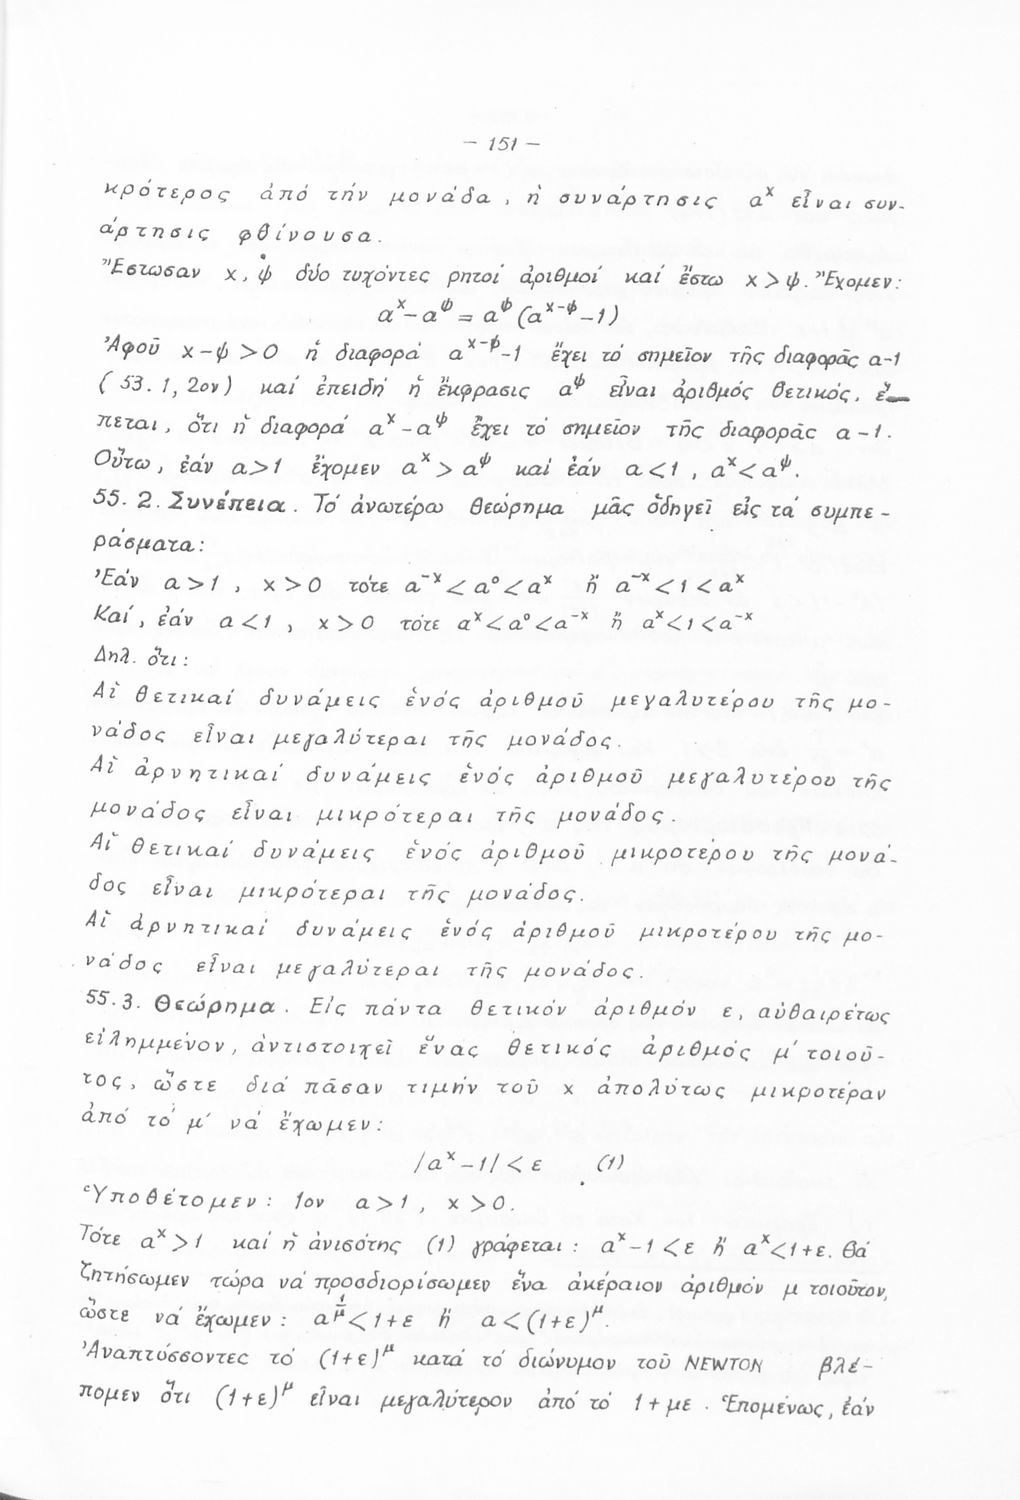 - 151 -
κρότερος ἀπό τήν μονάδα, ἡ συνάρτησις αˣ εἶναι συν-
άρτησις φθίνουσα.
Ἔστωσαν x, ψ δύο τυχόντες ρητοί ἀριθμοί καί ἔστω x > ψ. Ἔχομεν:
αˣ - α^ψ = α^ψ (α^{x-ψ} - 1)
Ἀφοῦ x - ψ > 0 ἡ διαφορά α^{x-ψ} - 1 ἔχει τό σημεῖον τῆς διαφορᾶς α-1
(53.1, 2ον) καί ἐπειδή ἡ ἔκφρασις α^ψ εἶναι ἀριθμός θετικός, ἕ-
πεται, ὅτι ἡ διαφορά αˣ - α^ψ ἔχει τό σημεῖον τῆς διαφορᾶς α-1.
Οὕτω, ἐάν α>1 ἔχομεν αˣ > α^ψ καί ἐάν α<1, αˣ < α^ψ.
55.2. Συνέπεια. Τό ἀνωτέρω θεώρημα μᾶς ὁδηγεῖ εἰς τά συμπε-
ράσματα:
Ἐάν α>1, x>0 τότε α⁻ˣ < α⁰ < αˣ ἤ α⁻ˣ < 1 < αˣ
Καί, ἐάν α<1, x>0 τότε αˣ < α⁰ < α⁻ˣ ἤ αˣ < 1 < α⁻ˣ
Δηλ. ὅτι:
Αἱ θετικαί δυνάμεις ἑνός ἀριθμοῦ μεγαλυτέρου τῆς μο-
νάδος εἶναι μεγαλύτεραι τῆς μονάδος.
Αἱ ἀρνητικαί δυνάμεις ἑνός ἀριθμοῦ μεγαλυτέρου τῆς
μονάδος εἶναι μικρότεραι τῆς μονάδος.
Αἱ θετικαί δυνάμεις ἑνός ἀριθμοῦ μικροτέρου τῆς μονά-
δος εἶναι μικρότεραι τῆς μονάδος.
Αἱ ἀρνητικαί δυνάμεις ἑνός ἀριθμοῦ μικροτέρου τῆς μο-
νάδος εἶναι μεγαλύτεραι τῆς μονάδος.
55.3. Θεώρημα. Εἰς πάντα θετικόν ἀριθμόν ε, αὐθαιρέτως
εἰλημμένον, ἀντιστοιχεῖ ἕνας θετικός ἀριθμός μ΄ τοιοῦ-
τος, ὥστε διά πᾶσαν τιμήν τοῦ x ἀπολύτως μικροτέραν
ἀπό τό μ΄ νά ἔχωμεν:
/αˣ - 1/ < ε (1)
Ὑποθέτομεν: 1ον α>1, x>0.
Τότε αˣ>1 καί ἡ ἀνισότης (1) γράφεται: αˣ - 1 < ε ἤ αˣ < 1+ε. Θά
ζητήσωμεν τώρα νά προσδιορίσωμεν ἕνα ἀκέραιον ἀριθμόν μ τοιοῦτον,
ὥστε νά ἔχωμεν: α^{1/μ} < 1+ε ἤ α < (1+ε)^μ.
Ἀναπτύσσοντες τό (1+ε)^μ κατά τό διώνυμον τοῦ NEWTON βλέ-
πομεν ὅτι (1+ε)^μ εἶναι μεγαλύτερον ἀπό τό 1+με. Ἑπομένως, ἐάν